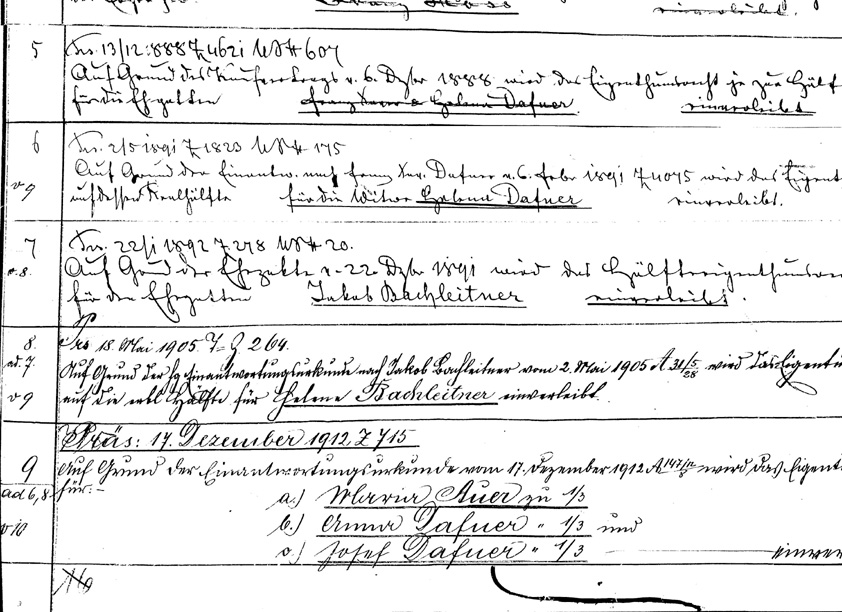 einverleibt.
5
Prs. 13/12 1888 Z 4621 USt 607
Auf Grund des Kaufvertrags v. 6. Dzbr 1888 wird das Eigenthumsrecht je zur Hälf
für die Ehegatten Franz Xaver & Helena Dafner einverleibt
6
Prs. 2/5 1891 Z 1823 USt 175
Auf Grund der Einantw. nach Franz Xav. Dafner v. 6. Febr 1891 Z 4075 wird das Eigent
v 9
auf dessen Realhälfte für die Witwe Helena Dafner einverleibt.
7
Prs. 22/1 1892 Z 278 USt 20.
Auf Grund der Ehepakte v. 22. Dzbr 1891 wird das Hälfteeigenthumsre
für den Ehegatten Jakob Bachleitner einverleibt.
8.
Prs 18. Mai 1905 T. Z. 264.
ad. 7
Auf Grund der Einantwortungsurkunde nach Jakob Bachleitner vom 2. Mai 1905 A 31/5 28 wird das Eigentu
v 9
auf die Hälfte für Helene Bachleitner einverleibt.
Präs: 17. Dezember 1912 Z 715
9
Auf Grund der Einantwortungsurkunde vom 17. Dezember 1912 A 147/12 wird das Eigent
ad 6, 8
für:-
a.) Maria Auer zu 1/3
v 10
b.) Anna Dafner " 1/3 und
c.) Josef Dafner " 1/3 einver